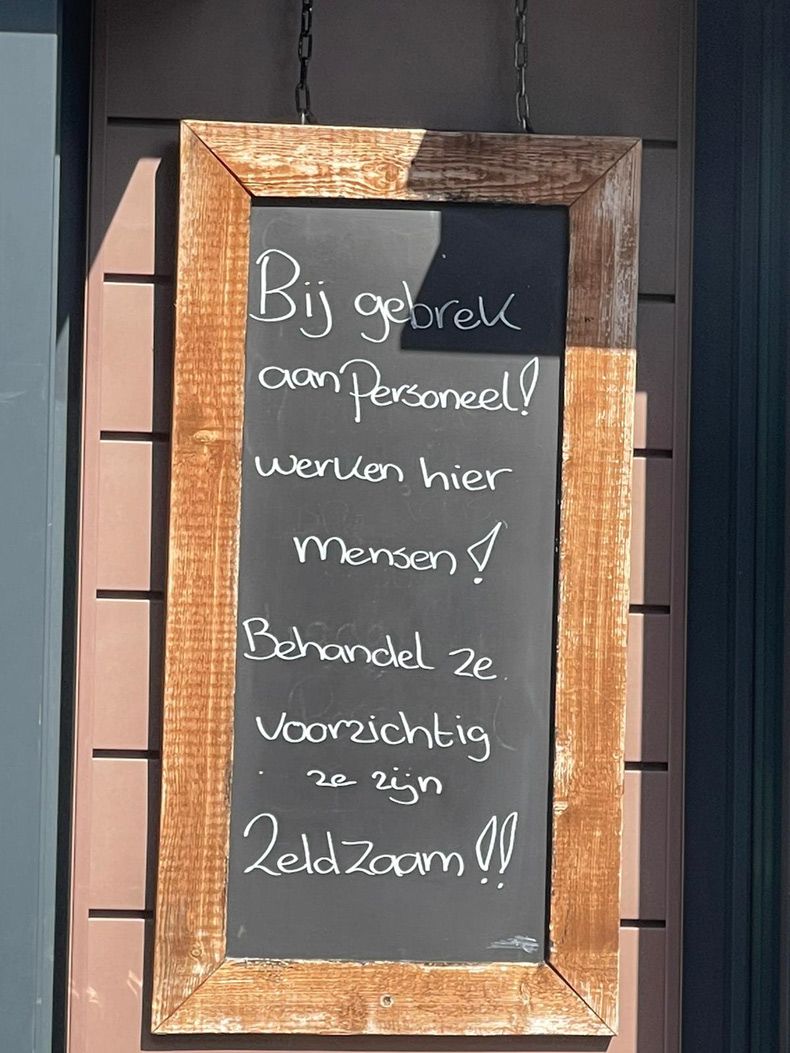 Bij gebrek
aan Personeel!
werken hier
mensen!
Behandel ze
voorzichtig
ze zijn
Zeldzaam!!